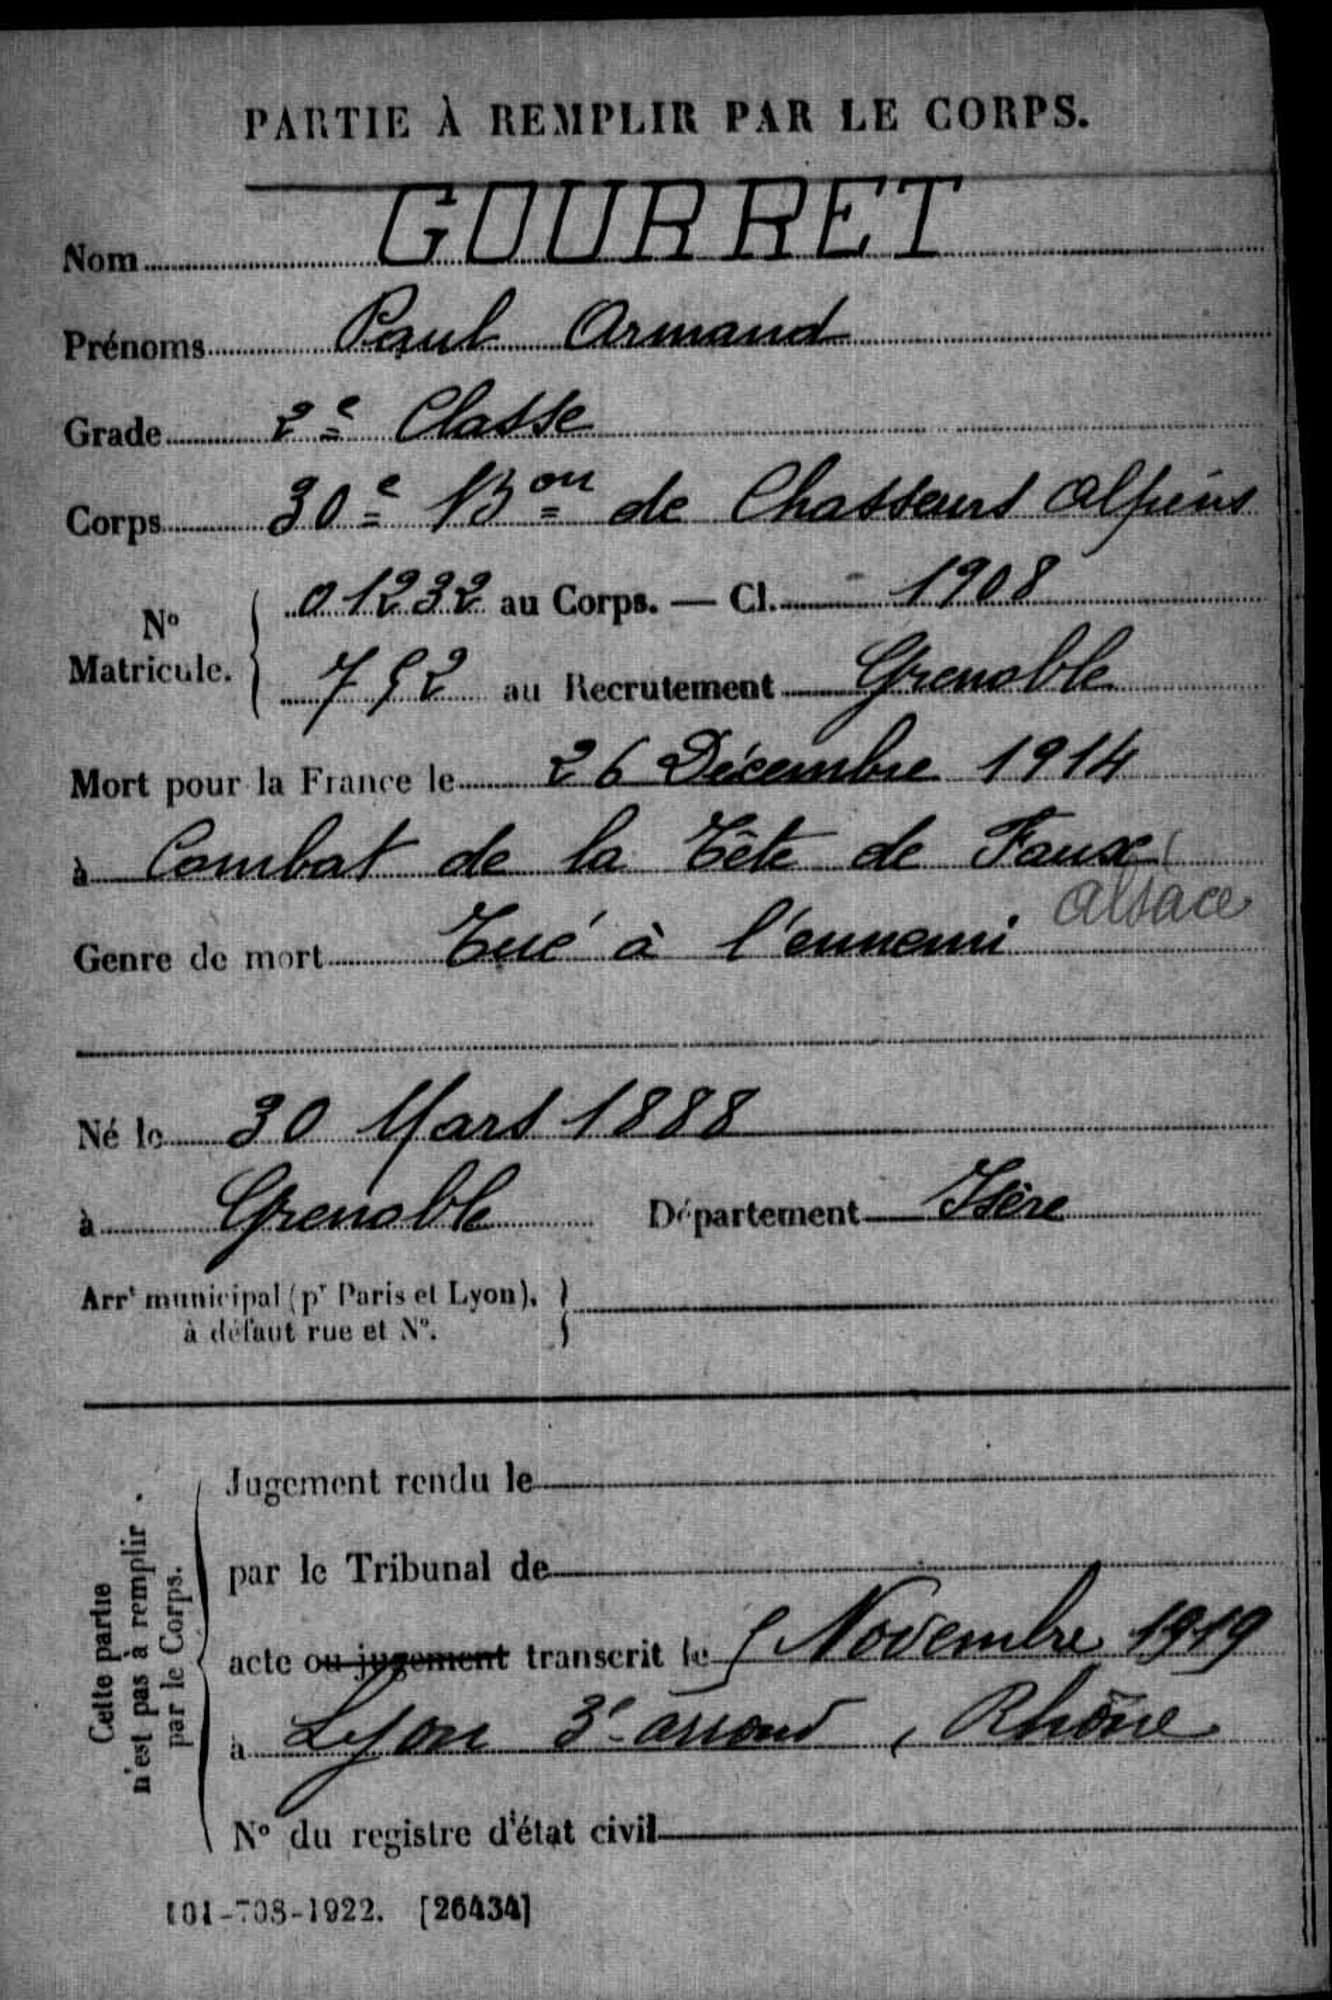 PARTIE À REMPLIR PAR LE CORPS.
Nom GOURRET
Prénoms Paul Armand
Grade 2e Classe
Corps 30e Bon de Chasseurs Alpins
No Matricule. 01232 au Corps. — Cl. 1908
752 au Recrutement Grenoble
Mort pour la France le 26 Décembre 1914
à Combat de la Tête de Faux
Alsace
Genre de mort Tué à l'ennemi
Né le 30 Mars 1888
à Grenoble Département Isère
Arrt municipal (pr Paris et Lyon),
à défaut rue et No.
Cette partie
n'est pas à remplir
par le Corps.
Jugement rendu le
par le Tribunal de
acte ou jugement transcrit le 5 Novembre 1919
à Lyon 3e arrond, Rhône
No du registre d'état civil
101-708-1922. [26434]